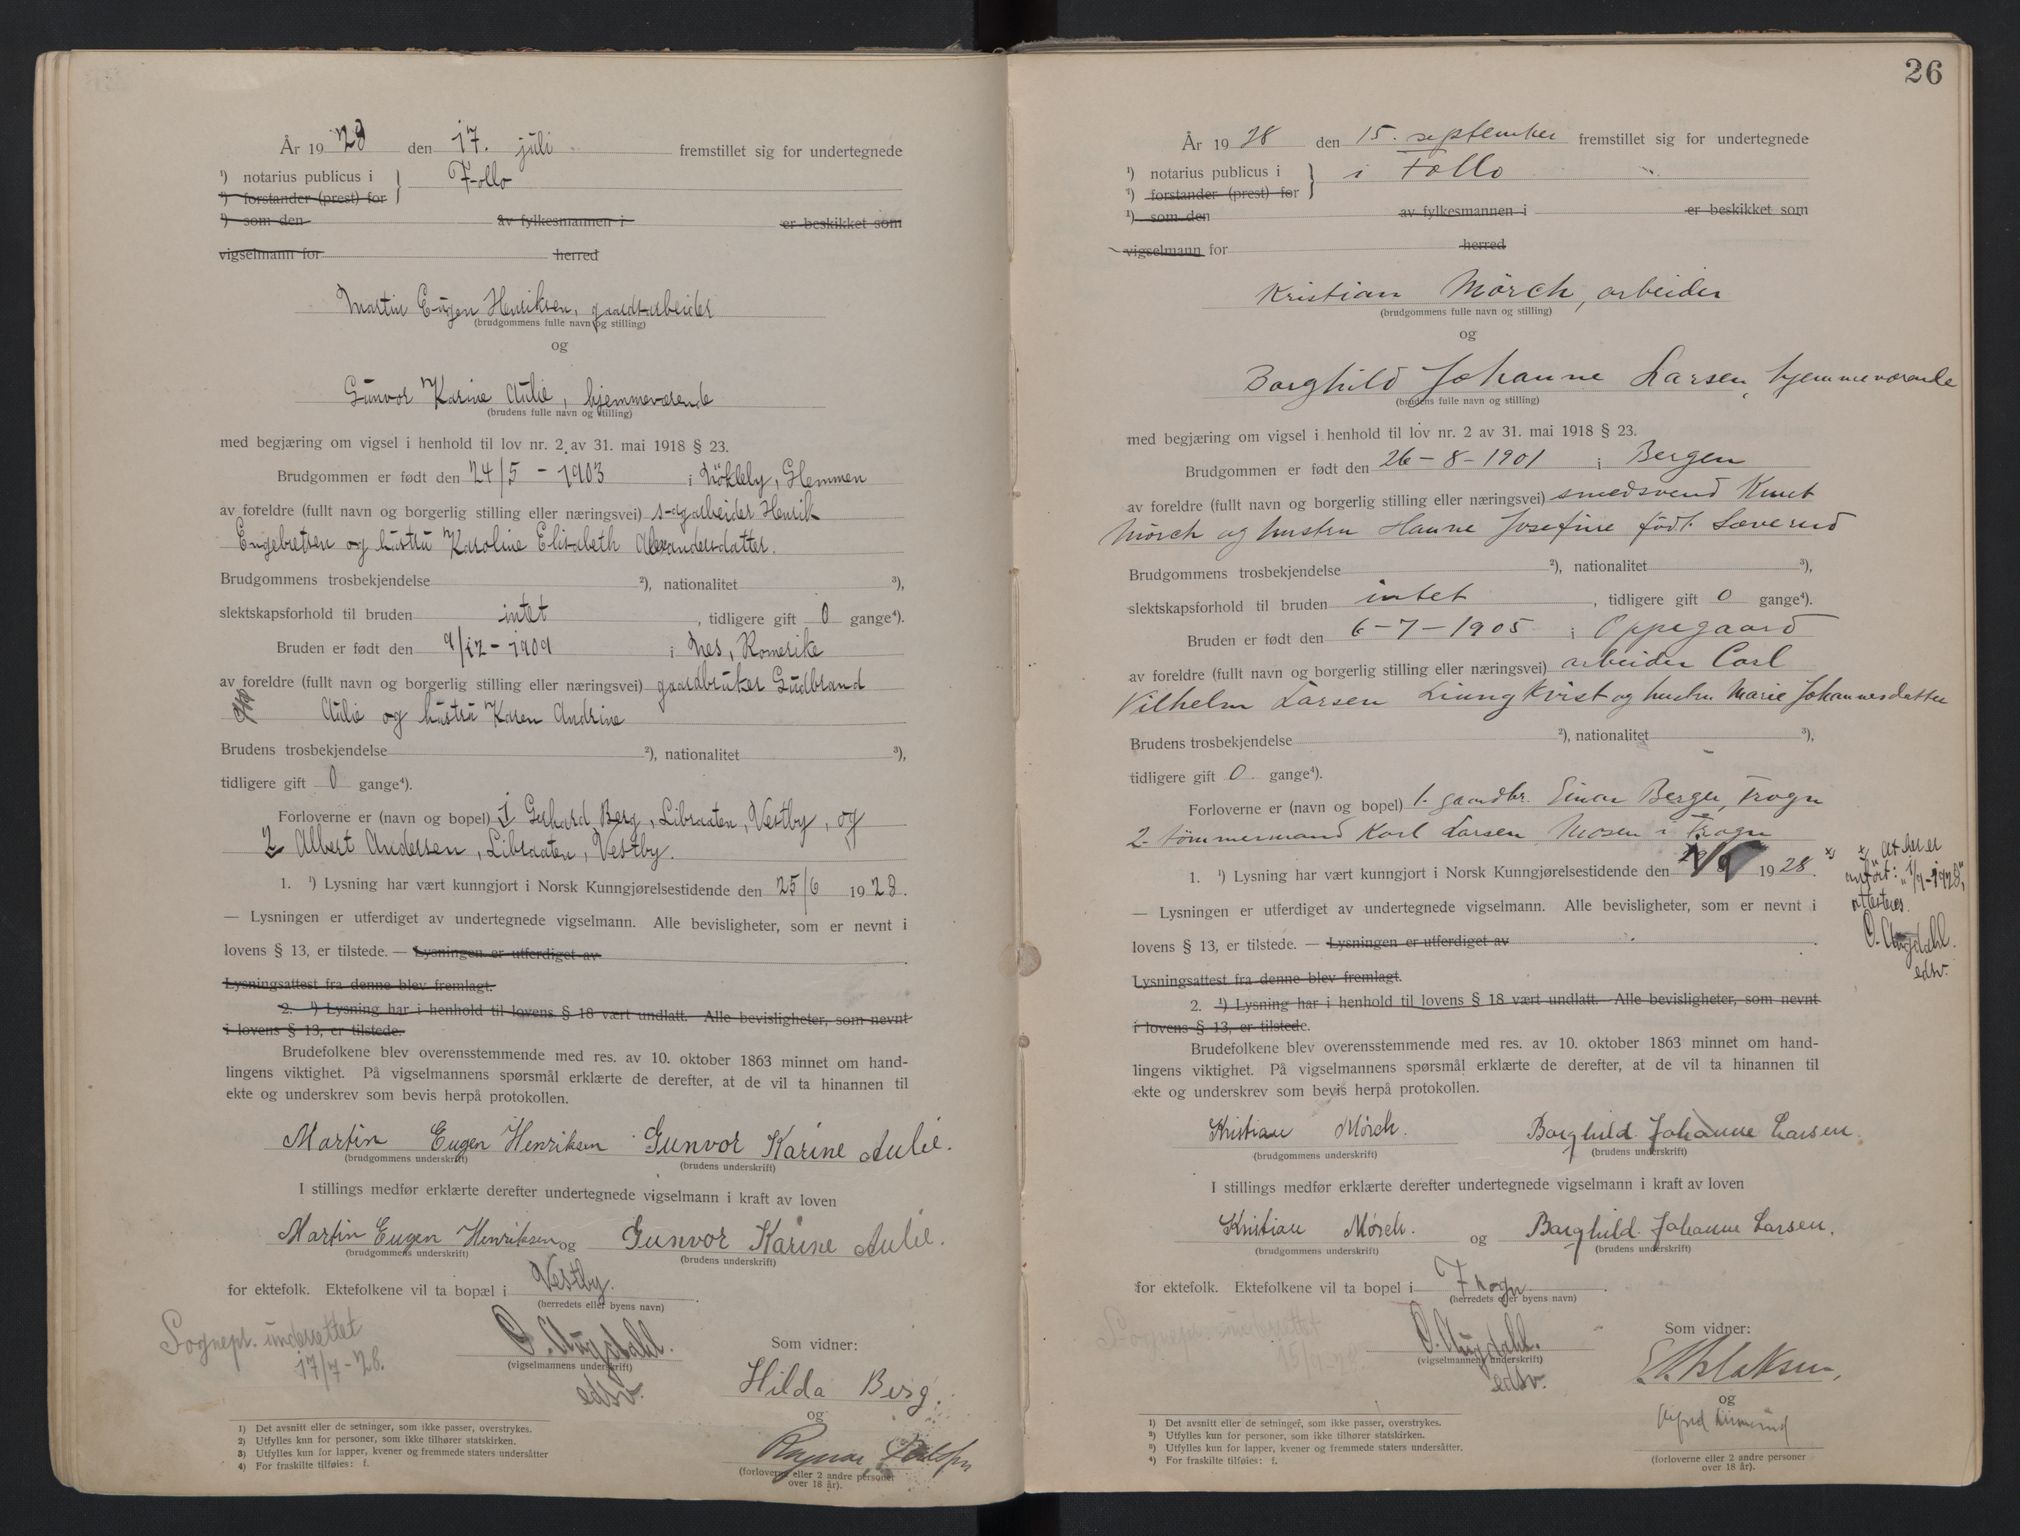 År 1928 den 17. juli fremstillet sig for undertegnede
¹) notarius publicus i } Follo
¹) forstander (prest) for
¹) som den av fylkesmannen i er beskikket som
vigselmann for herred
Martin Eugen Henriksen, gaardsarbeider
(brudgommens fulle navn og stilling)
og
Gunvor Karine Aulie, hjemmeværende
(brudens fulle navn og stilling)
med begjæring om vigsel i henhold til lov nr. 2 av 31. mai 1918 § 23.
Brudgommen er født den 24/5 - 1903 i Nökleby, Glemmen
av foreldre (fullt navn og borgerlig stilling eller næringsvei) sagarbeider Henrik
Engebretsen og hustru Karoline Elisabeth Alexandersdatter.
Brudgommens trosbekjendelse ²), nationalitet ³),
slektskapsforhold til bruden intet, tidligere gift 0 gange⁴).
Bruden er født den 9/12 - 1909 i Nes, Romerike
av foreldre (fullt navn og borgerlig stilling eller næringsvei) gaardbruker Gudbrand
Aulie og hustru Karen Andrine
Brudens trosbekjendelse ²), nationalitet ³),
tidligere gift 0 gange⁴).
Forloverne er (navn og bopel) 1 Gerhard Berg, Libraaten, Vestby, og
2 Albert Andersen, Libraaten, Vestby.
1. ¹) Lysning har vært kunngjort i Norsk Kunngjørelsestidende den 25/6 1928.
— Lysningen er utferdiget av undertegnede vigselmann. Alle bevisligheter, som er nevnt i
lovens § 13, er tilstede. — Lysningen er utferdiget av
Lysningsattest fra denne blev fremlagt.
2. ¹) Lysning har i henhold til lovens § 18 vært undlatt. Alle bevisligheter, som nevnt
i lovens § 13, er tilstede.
Brudefolkene blev overensstemmende med res. av 10. oktober 1863 minnet om hand-
lingens viktighet. På vigselmannens spørsmål erklærte de derefter, at de vil ta hinannen til
ekte og underskrev som bevis herpå protokollen.
Martin Eugen Henriksen Gunvor Karine Aulie.
(brudgommens underskrift) (brudens underskrift)
I stillings medfør erklærte derefter undertegnede vigselmann i kraft av loven
Martin Eugen Henriksen og Gunvor Karine Aulie.
(brudgommens underskrift) (brudens underskrift)
for ektefolk. Ektefolkene vil ta bopæl i Vestby.
(herredets eller byens navn)
Sognepr. underrettet
17/7-28.
O. Augdahl.
(vigselmannens underskrift)
edsv.
Som vidner:
Hilda Berg.
og
Ragnar
(forloverne eller 2 andre personer
over 18 år).
1) Det avsnitt eller de setninger, som ikke passer, overstrykes.
2) Utfylles kun for personer, som ikke tilhører statskirken.
3) Utfylles kun for lapper, kvener og fremmede staters undersåtter
4) For fraskilte tilføies: f.
26
År 1928 den 15. september fremstillet sig for undertegnede
¹) notarius publicus i } i Follo
¹) forstander (prest) for
¹) som den av fylkesmannen i er beskikket som
vigselmann for herred
Kristian Mörch, arbeider
(brudgommens fulle navn og stilling)
og
Borghild Johanne Larsen, hjemmeværende
(brudens fulle navn og stilling)
med begjæring om vigsel i henhold til lov nr. 2 av 31. mai 1918 § 23.
Brudgommen er født den 26-8-1901 i Bergen
av foreldre (fullt navn og borgerlig stilling eller næringsvei) smedsvend Knut
Mörch og hustru Hanne Josefine født Sæverud
Brudgommens trosbekjendelse ²), nationalitet ³),
slektskapsforhold til bruden intet, tidligere gift 0 gange⁴).
Bruden er født den 6-7-1905 i Oppegaard
av foreldre (fullt navn og borgerlig stilling eller næringsvei) arbeider Carl
Vilhelm Larsen Liungkvist og hustru Marie Johannesdatter
Brudens trosbekjendelse ²), nationalitet ³),
tidligere gift 0 gange⁴).
Forloverne er (navn og bopel) 1. gaardbr. Einar Berger, Frogn
2. tömmermand Karl Larsen, Mosen i Frogn
1. ¹) Lysning har vært kunngjort i Norsk Kunngjørelsestidende den 1/9 1928. x)
x) "At her er
anført: "1/9-1928",
attesteres.
O. Augdahl.
edsv.
— Lysningen er utferdiget av undertegnede vigselmann. Alle bevisligheter, som er nevnt i
lovens § 13, er tilstede. — Lysningen er utferdiget av
Lysningsattest fra denne blev fremlagt.
2. ¹) Lysning har i henhold til lovens § 18 vært undlatt. Alle bevisligheter, som nevnt
i lovens § 13, er tilstede.
Brudefolkene blev overensstemmende med res. av 10. oktober 1863 minnet om hand-
lingens viktighet. På vigselmannens spørsmål erklærte de derefter, at de vil ta hinannen til
ekte og underskrev som bevis herpå protokollen.
Kristian Mørch. Borghild Johanne Larsen.
(brudgommens underskrift) (brudens underskrift)
I stillings medfør erklærte derefter undertegnede vigselmann i kraft av loven
Kristian Mørch. og Borghild Johanne Larsen.
(brudgommens underskrift) (brudens underskrift)
for ektefolk. Ektefolkene vil ta bopel i Frogn.
(herredets eller byens navn)
Sognepr. underrettet
15/9-28.
O. Augdahl.
(vigselmannens underskrift)
edsv.
Som vidner:
og
Alfred
(forloverne eller 2 andre personer
over 18 år).
1) Det avsnitt eller de setninger, som ikke passer, overstrykes.
2) Utfylles kun for personer, som ikke tilhører statskirken.
3) Utfylles kun for lapper, kvener og fremmede staters undersåtter.
4) For fraskilte tilføies: f.